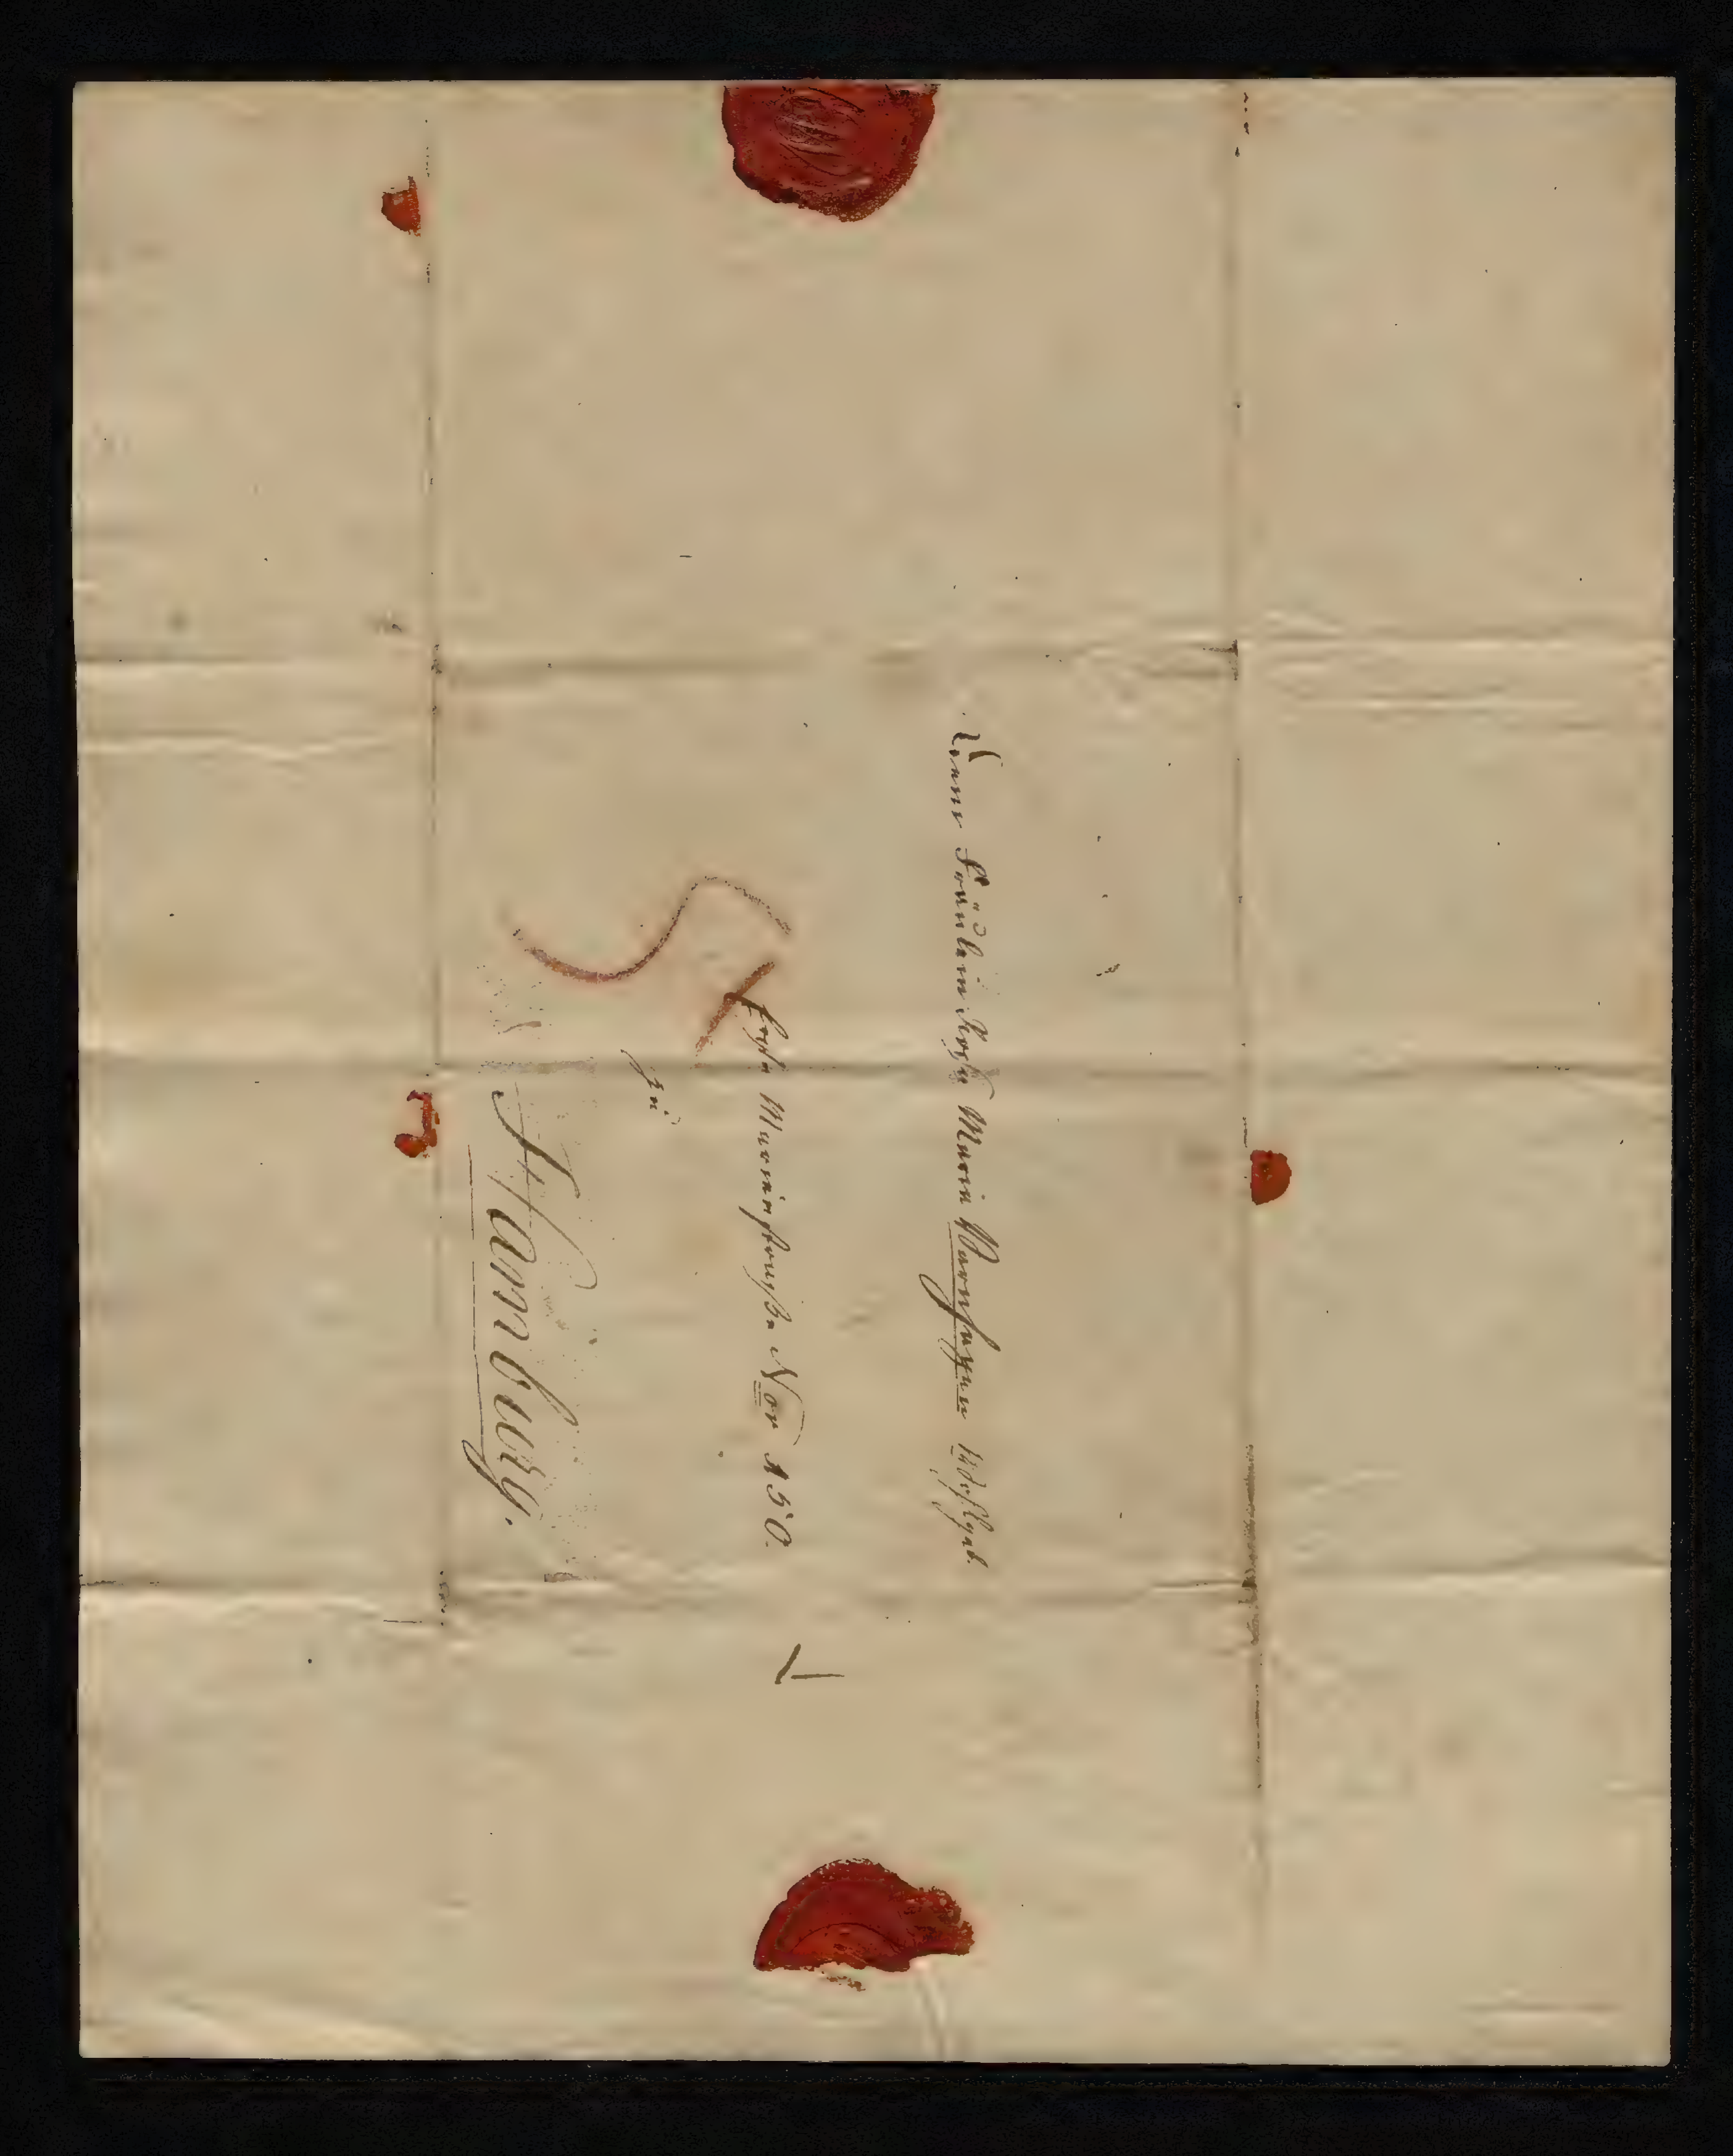 Dem Fräulein Rosa Maria Varnhagen Wohlgeb.
erste Marienstraße Nor 150.
zu
Hamburg.